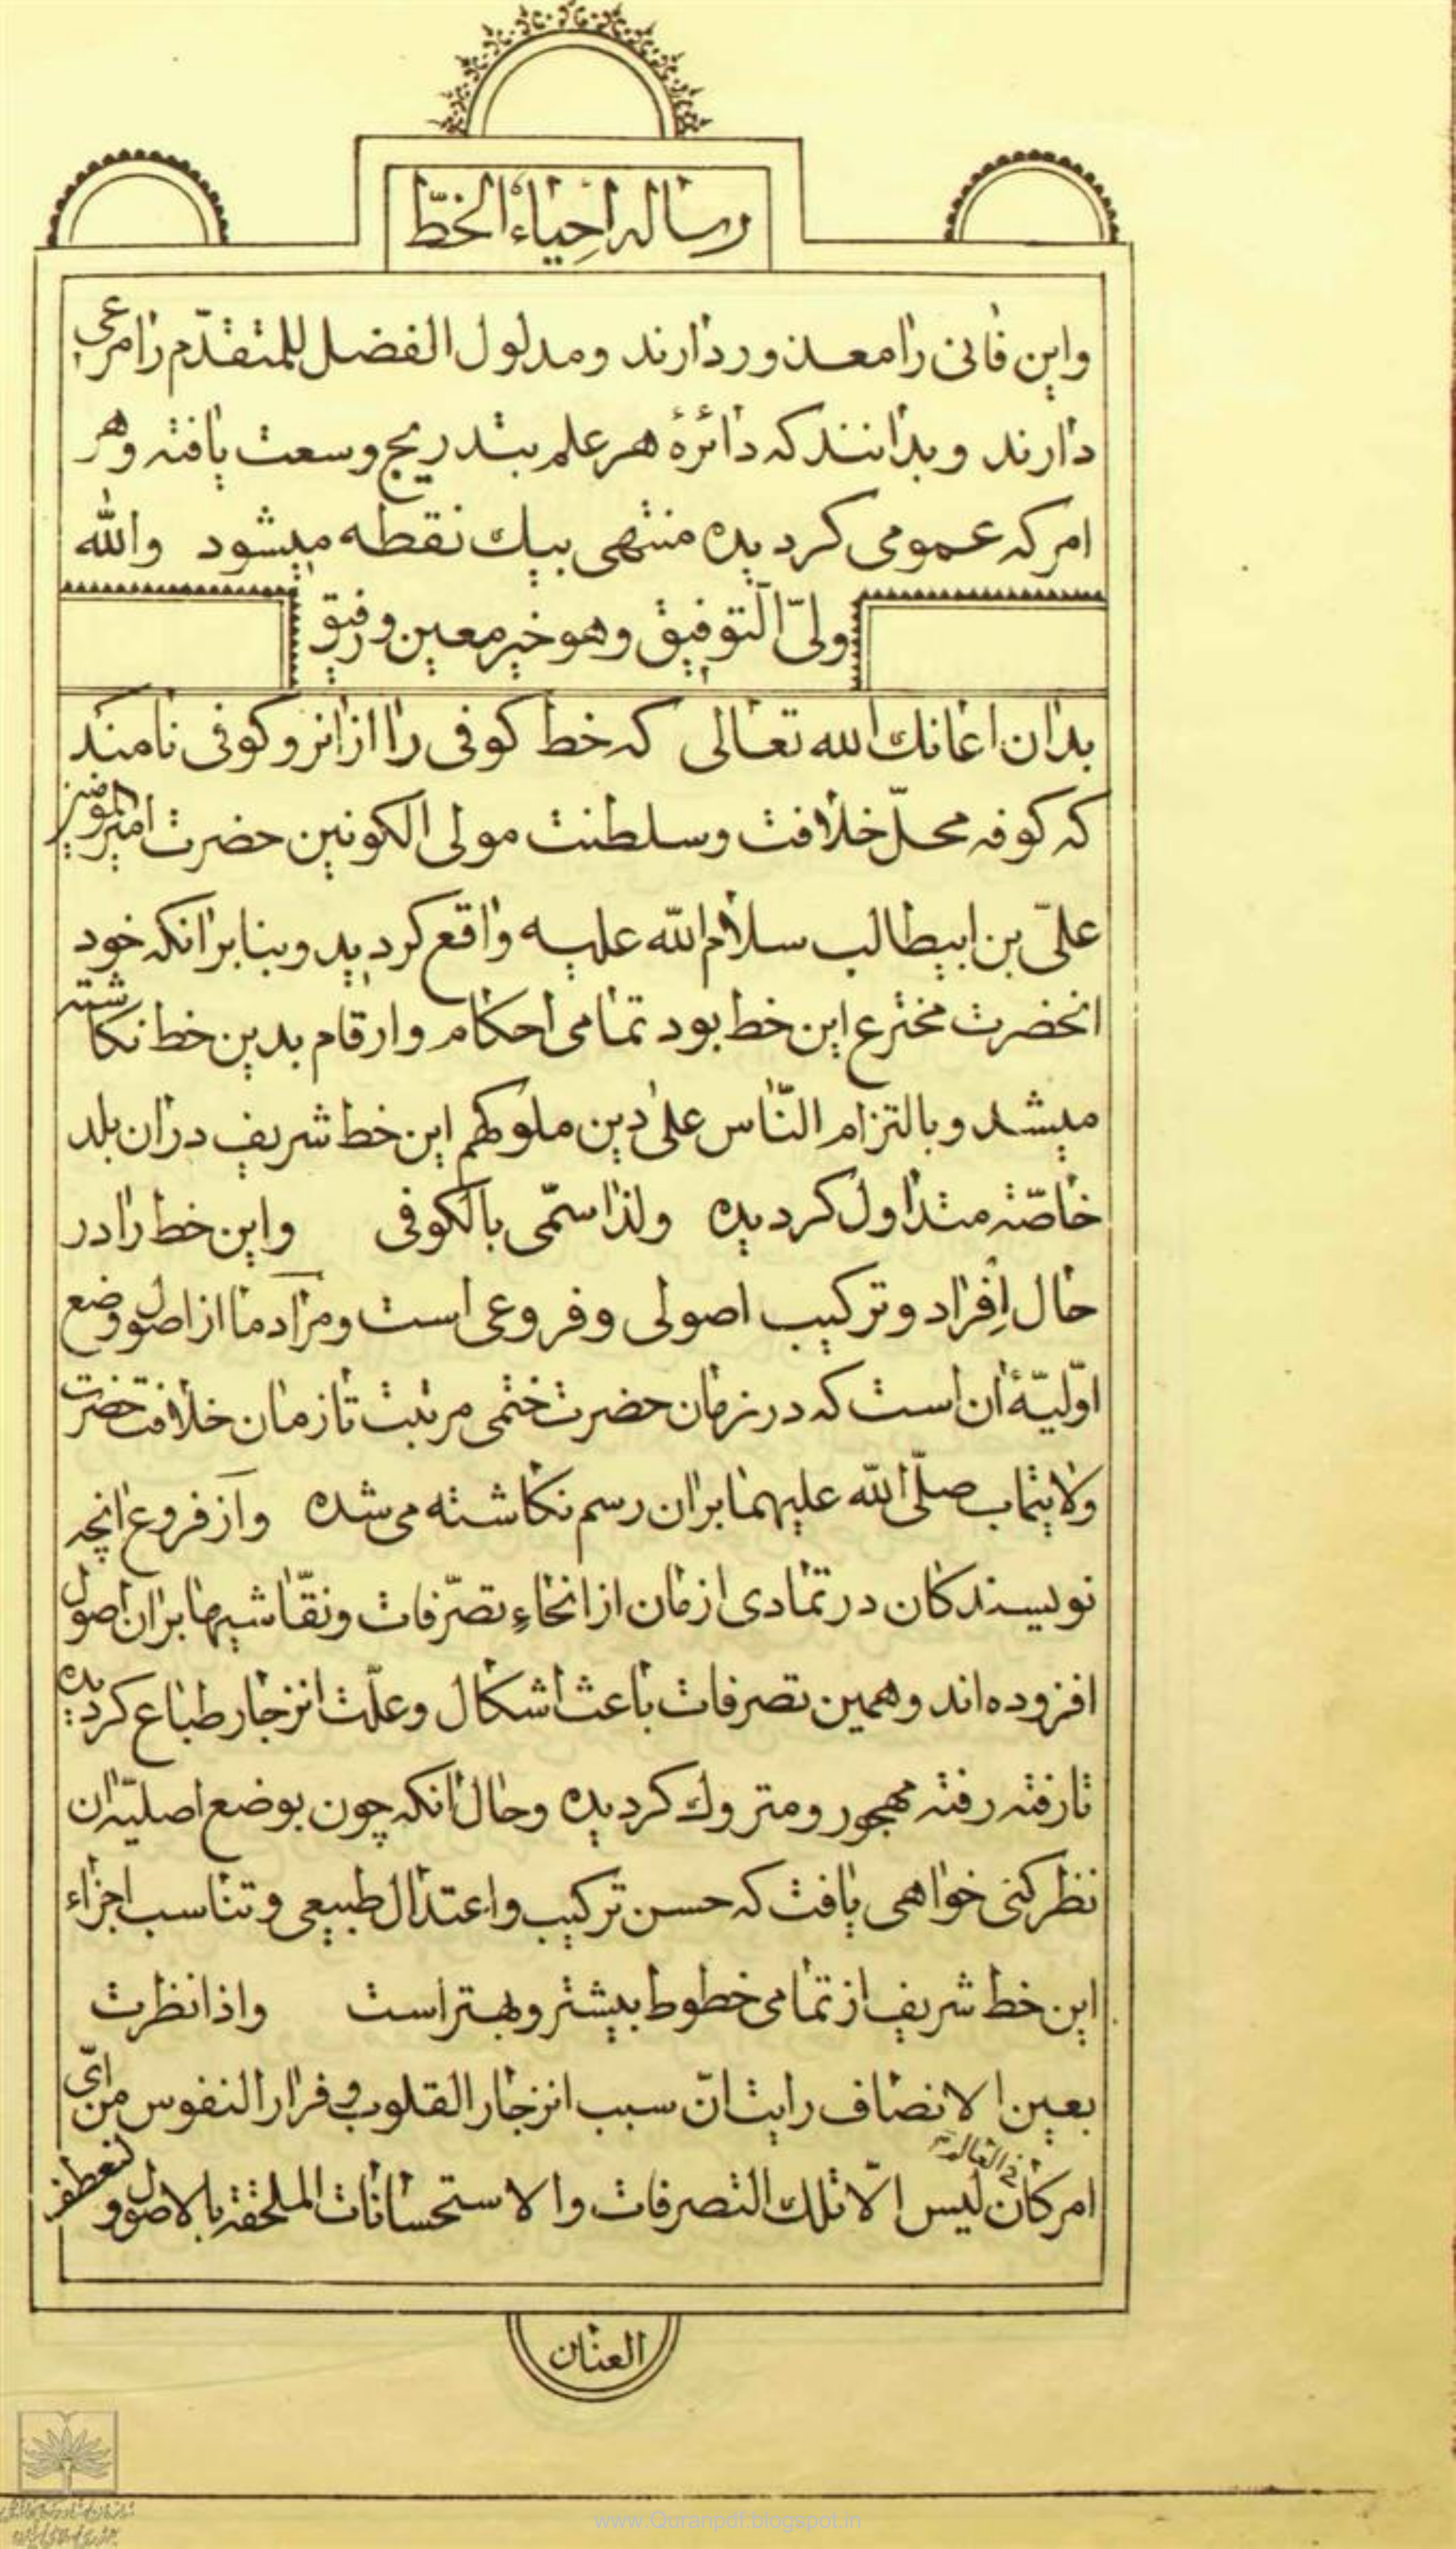 رساله احیاء الخطّ
واین فانی را معذور دارند ومدلول الفضل للمتقدّم را مرعی
دارند وبدانند که دائرۀ هر علم بتدریج وسعت یافته وهر
امر که عمومی کردیده منتهی بیك نقطه میشود والله
ولیّ التوفیق وهو خیر معین ورفیق
بدان اعانك الله تعالی که خط کوفی را از انرو کوفی نامند
که کوفه محلّ خلافت وسلطنت مولی الکونین حضرت امیرالمؤمنین
علیّ بن ابیطالب سلام الله علیه واقع کردید وبنا برانکه خود
انحضرت مخترع این خط بود تمامی احکام وارقام بدین خط نکاشته
میشد وبالتزام النّاس علی دین ملوکهم این خط شریف دران بلد
خاصّته متداول کردیده ولذا سمّی بالکوفی واین خط را در
حال اِفراد وترکیب اصولی وفروعی است ومراد ما از اصول وضع
اوّلیّۀ ان است که در زمان حضرت ختمی مرتبت تا زمان خلافت حضرت
ولایتماب صلّی الله علیهما بران رسم نکاشته می شده واز فروع انچه
نویسندکان در تمادی ازمان از انحاءِ تصرّفات ونقّاشیها بران اصول
افزوده اند وهمین تصرفات باعث اشکال وعلّت انزجار طباع کردیده
تا رفته رفته مهجور ومتروك کردیده وحال انکه چون بوضع اصلیّه ان
نظر کنی خواهی یافت که حسن ترکیب واعتدال طبیعی وتناسب اجزاء
این خط شریف از تمامی خطوط بیشتر وبهتر است واذا نظرت
بعین الانصاف رایت انّ سبب انزجار القلوب وفرار النفوس من ایّ
امر کان فی العالم لیس الّا تلك التصرفات والاستحسانات الملحقة بالاصول و لنعطف
العنان
www.Quranpdf.blogspot.in